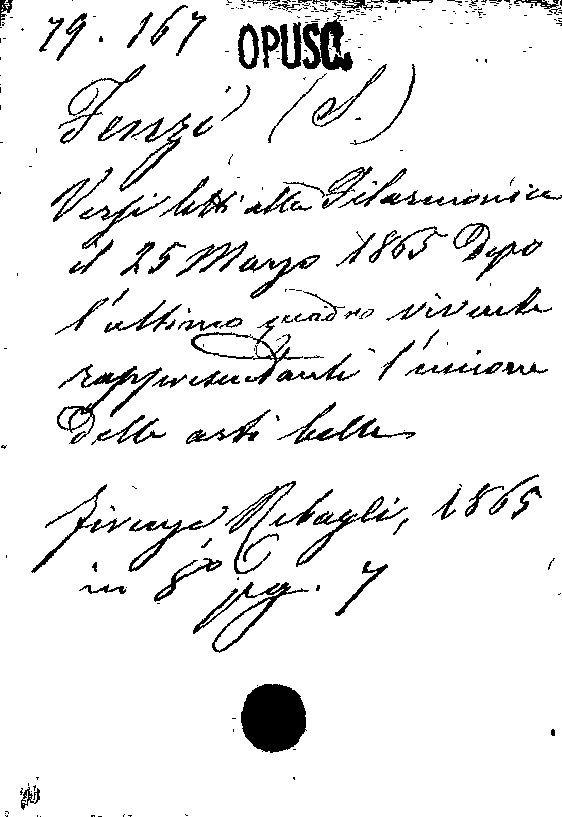 79. 167 OPUSC.
Fenzi (S.)
Versi letti alla Filarmonica
il 25 Marzo 1865 Dopo
l'ultimo quadro vivente
rappresentante l'unione
delle arti belle
Firenze, Rebagli, 1865
in 8º pg. 7